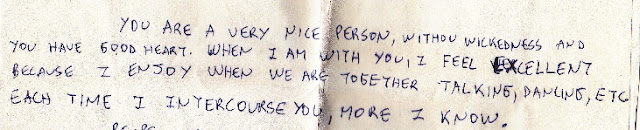 YOU ARE A VERY NICE PERSON, WITHOU WICKEDNESS AND
YOU HAVE GOOD HEART. WHEN I AM WITH YOU, I FEEL EXCELLENT
BECAUSE I ENJOY WHEN WE ARE TOGETHER TALKING, DANCING, ETC
EACH TIME I INTERCOURSE YOU, MORE I KNOW.